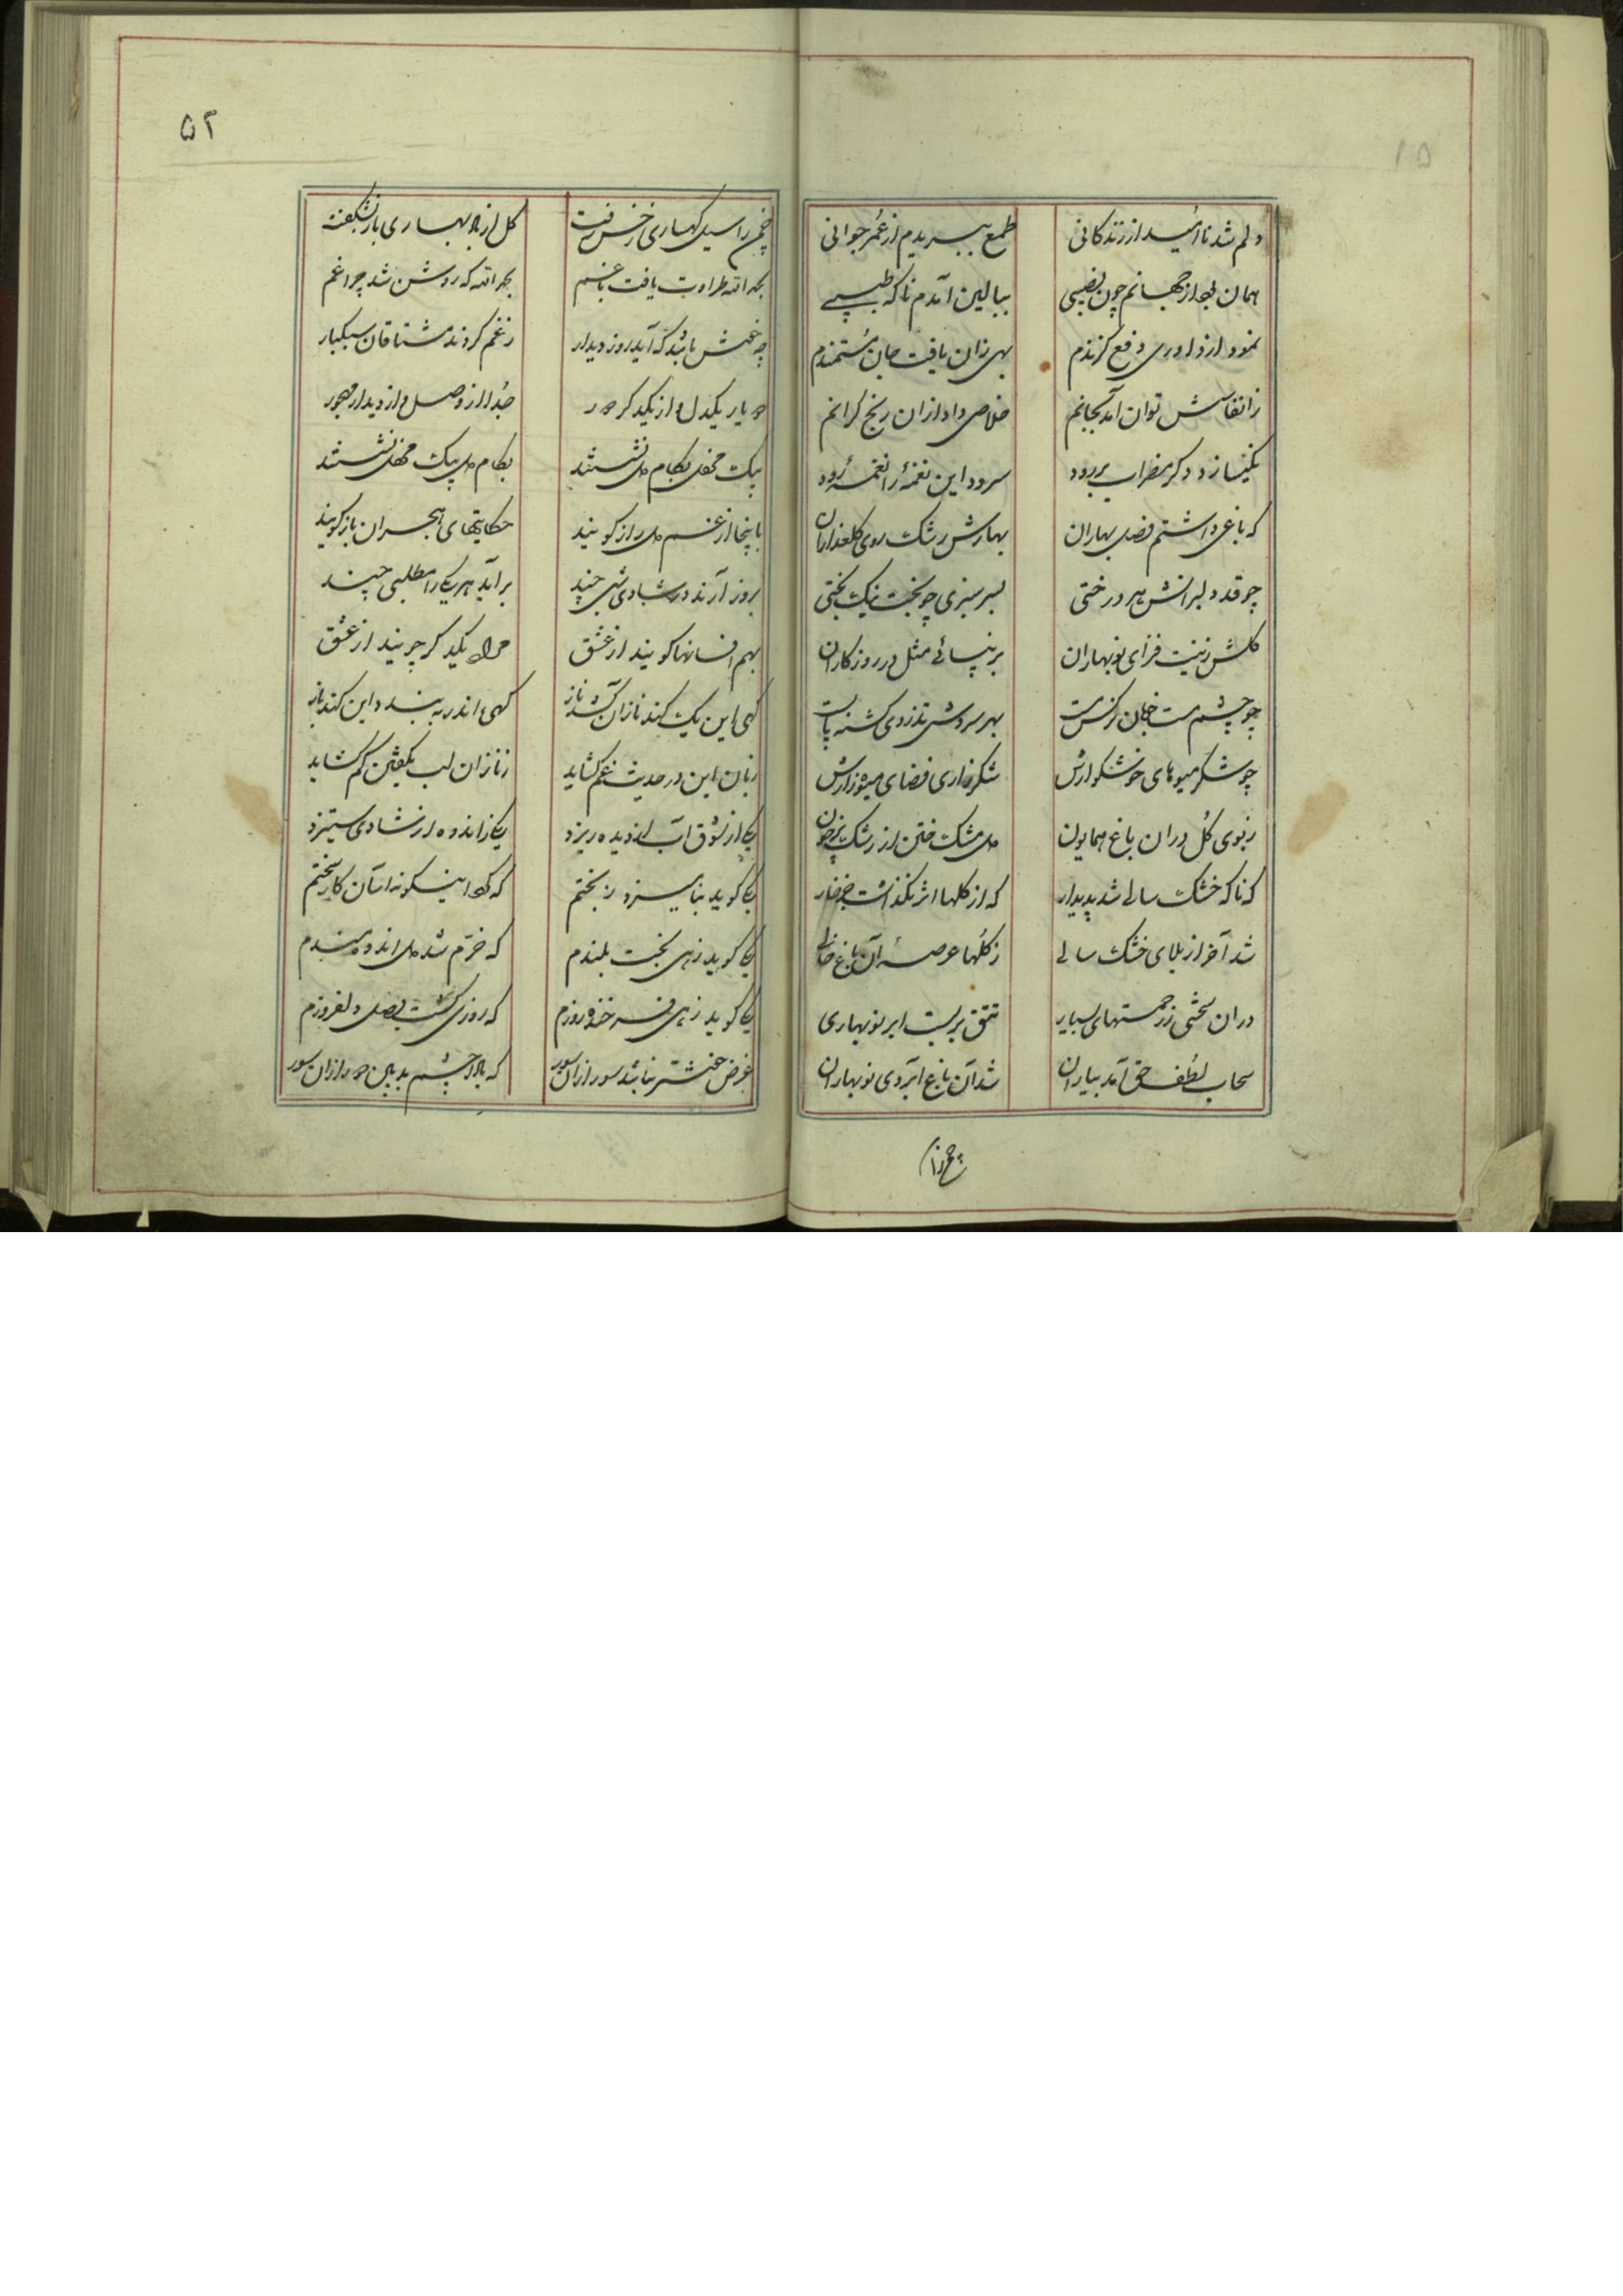 دلم شد نا امید از زندگانی طمع ببریدم از عمر جوانی
همان بود از جهانم چون نصیبی ببالین آمدم ناکه طبیبی
نمود از داوری دفع کزندم بهی زان یافت جان مستمندم
ز انفاسش توان آمد بجانم خلاصی داد ازان رنج کرانم
نکیسا زد دکر مضراب بر رود سرود این نغمهٔ را نغمهٔ رود
که باغی داشتم فصل بهاران بهارش رشک روی کلعذاران
چو قد دلبرانش هر درختی بسر سبزی چو بخت نیک بختی
کلش زینت فزای نوبهاران برنپسائی مثل در روزکاران
چو چشم مست خوبان نرکس مست بهر سروش تذروی کشته پابست
چو شکر میوهای خوشکوارش شکرزاری فضای میوه زارش
ز بوی کل دران باغ همایون دل مشک ختن از رشک پر خون
که ناکه خشک سالی شد پدیدار که از کلها اثر نکذاشت جز خار
شد آخر از بلای خشک سالی ز کلها عرصهٔ آن باغ خالی
دران سختی ز رحمتهای بسیار تتق بر بست ابر نوبهاری
سحاب لطف حق آمد بباران شد آن باغ آبروی نوبهاران
۵۲
چمن را سیل کهساری ز خس رفت کل از باد بهاری باز بشکفت
بحمد الله طراوت یافت باغم بحمد الله که روشن شد چراغم
چه خوش باشد که آید روز دیدار ز غم کردند مشتاقان سبکبار
دو یار یکدل و از یکدکر دور جدا از وصل و از دیدار مهجور
بیک محفل بکام دل نشستند بکام دل بیک محفل نشستند
باینجا از غم دل راز کویند حکایتهای هجران باز کویند
بروز آرند در شادی شبی چند برآید هر یکی را مطلبی چند
بهم افسانها کویند از عشق مراد یکدکر جویند از عشق
کهی این یک کند ناز آن کشد ناز کهی او در ببندد این کند باز
زبان این در حدیث غم کشاید ز ناز آن لب بکفتن کم کشاید
یکی از شوق آب از دیده ریزد یکی ز اندوه از شادی ستیزد
یکی کوید بنامیزد ز بختم که کرد اینکونه آسان کار سختم
یکی کوید زهی بخت بلندم که خرم شد دل اندوه مندم
یکی کوید زهی فرخنده روزم که روزی کشت وصل دلفروزم
غرض خوشتر نباشد سور ازان سور که بادا چشم بد یا رب دور ازان سور